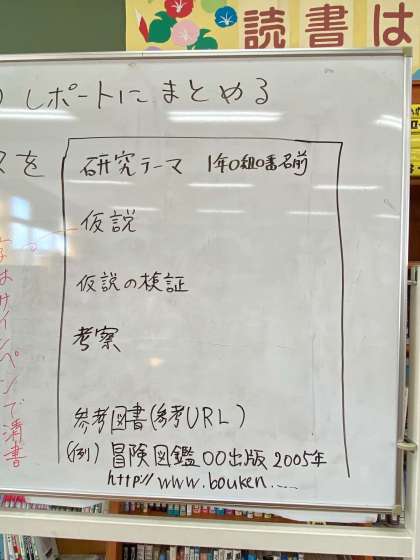 読書は
レポートにまとめる
スを
研究テーマ 1年○組○番名前
仮説
仮説の検証
考察
参考図書(参考URL)
(例) 冒険図鑑 ○○出版 2005年
http://www.bouken.....
はサインペンで清書